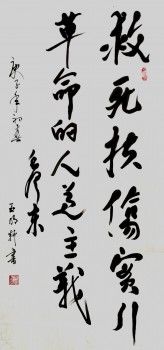 救死扶傷實行
革命的人道主義
毛澤東
庚子年初
書